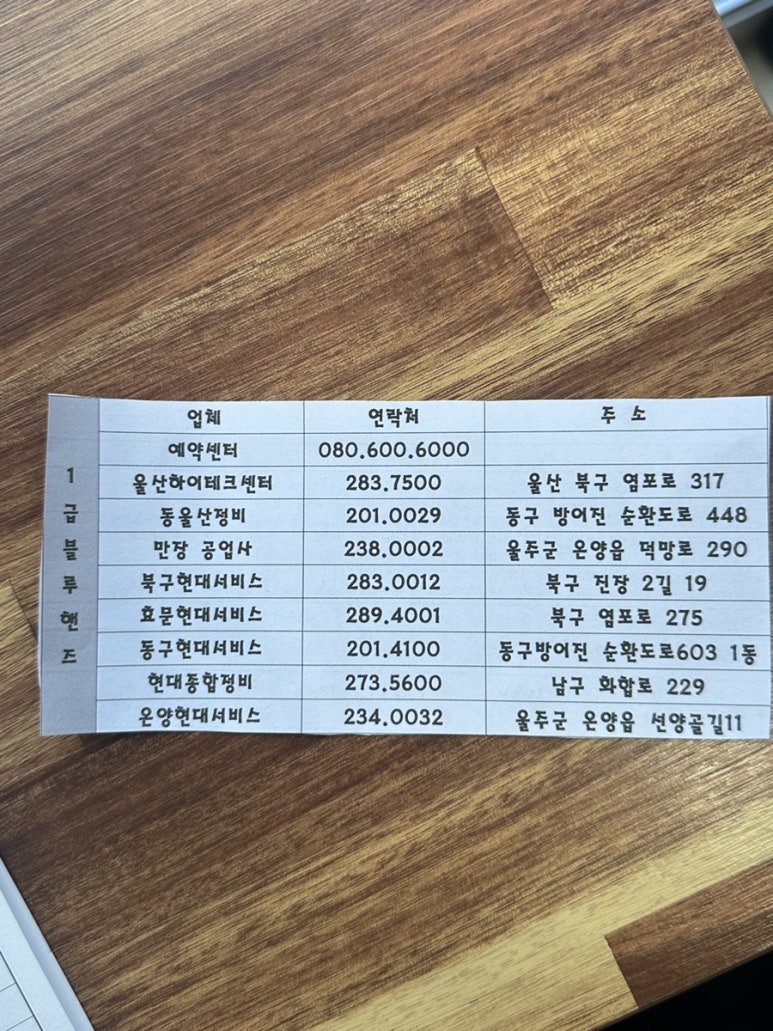 1급블루핸즈
업체 연락처 주 소
예약센터 080.600.6000
울산하이테크센터 283.7500 울산 북구 염포로 317
동울산정비 201.0029 동구 방어진 순환도로 448
만장 공업사 238.0002 울주군 온양읍 덕망로 290
북구현대서비스 283.0012 북구 진장 2길 19
효문현대서비스 289.4001 북구 염포로 275
동구현대서비스 201.4100 동구방어진 순환도로603 1동
현대종합정비 273.5600 남구 화합로 229
온양현대서비스 234.0032 울주군 온양읍 선양골길11